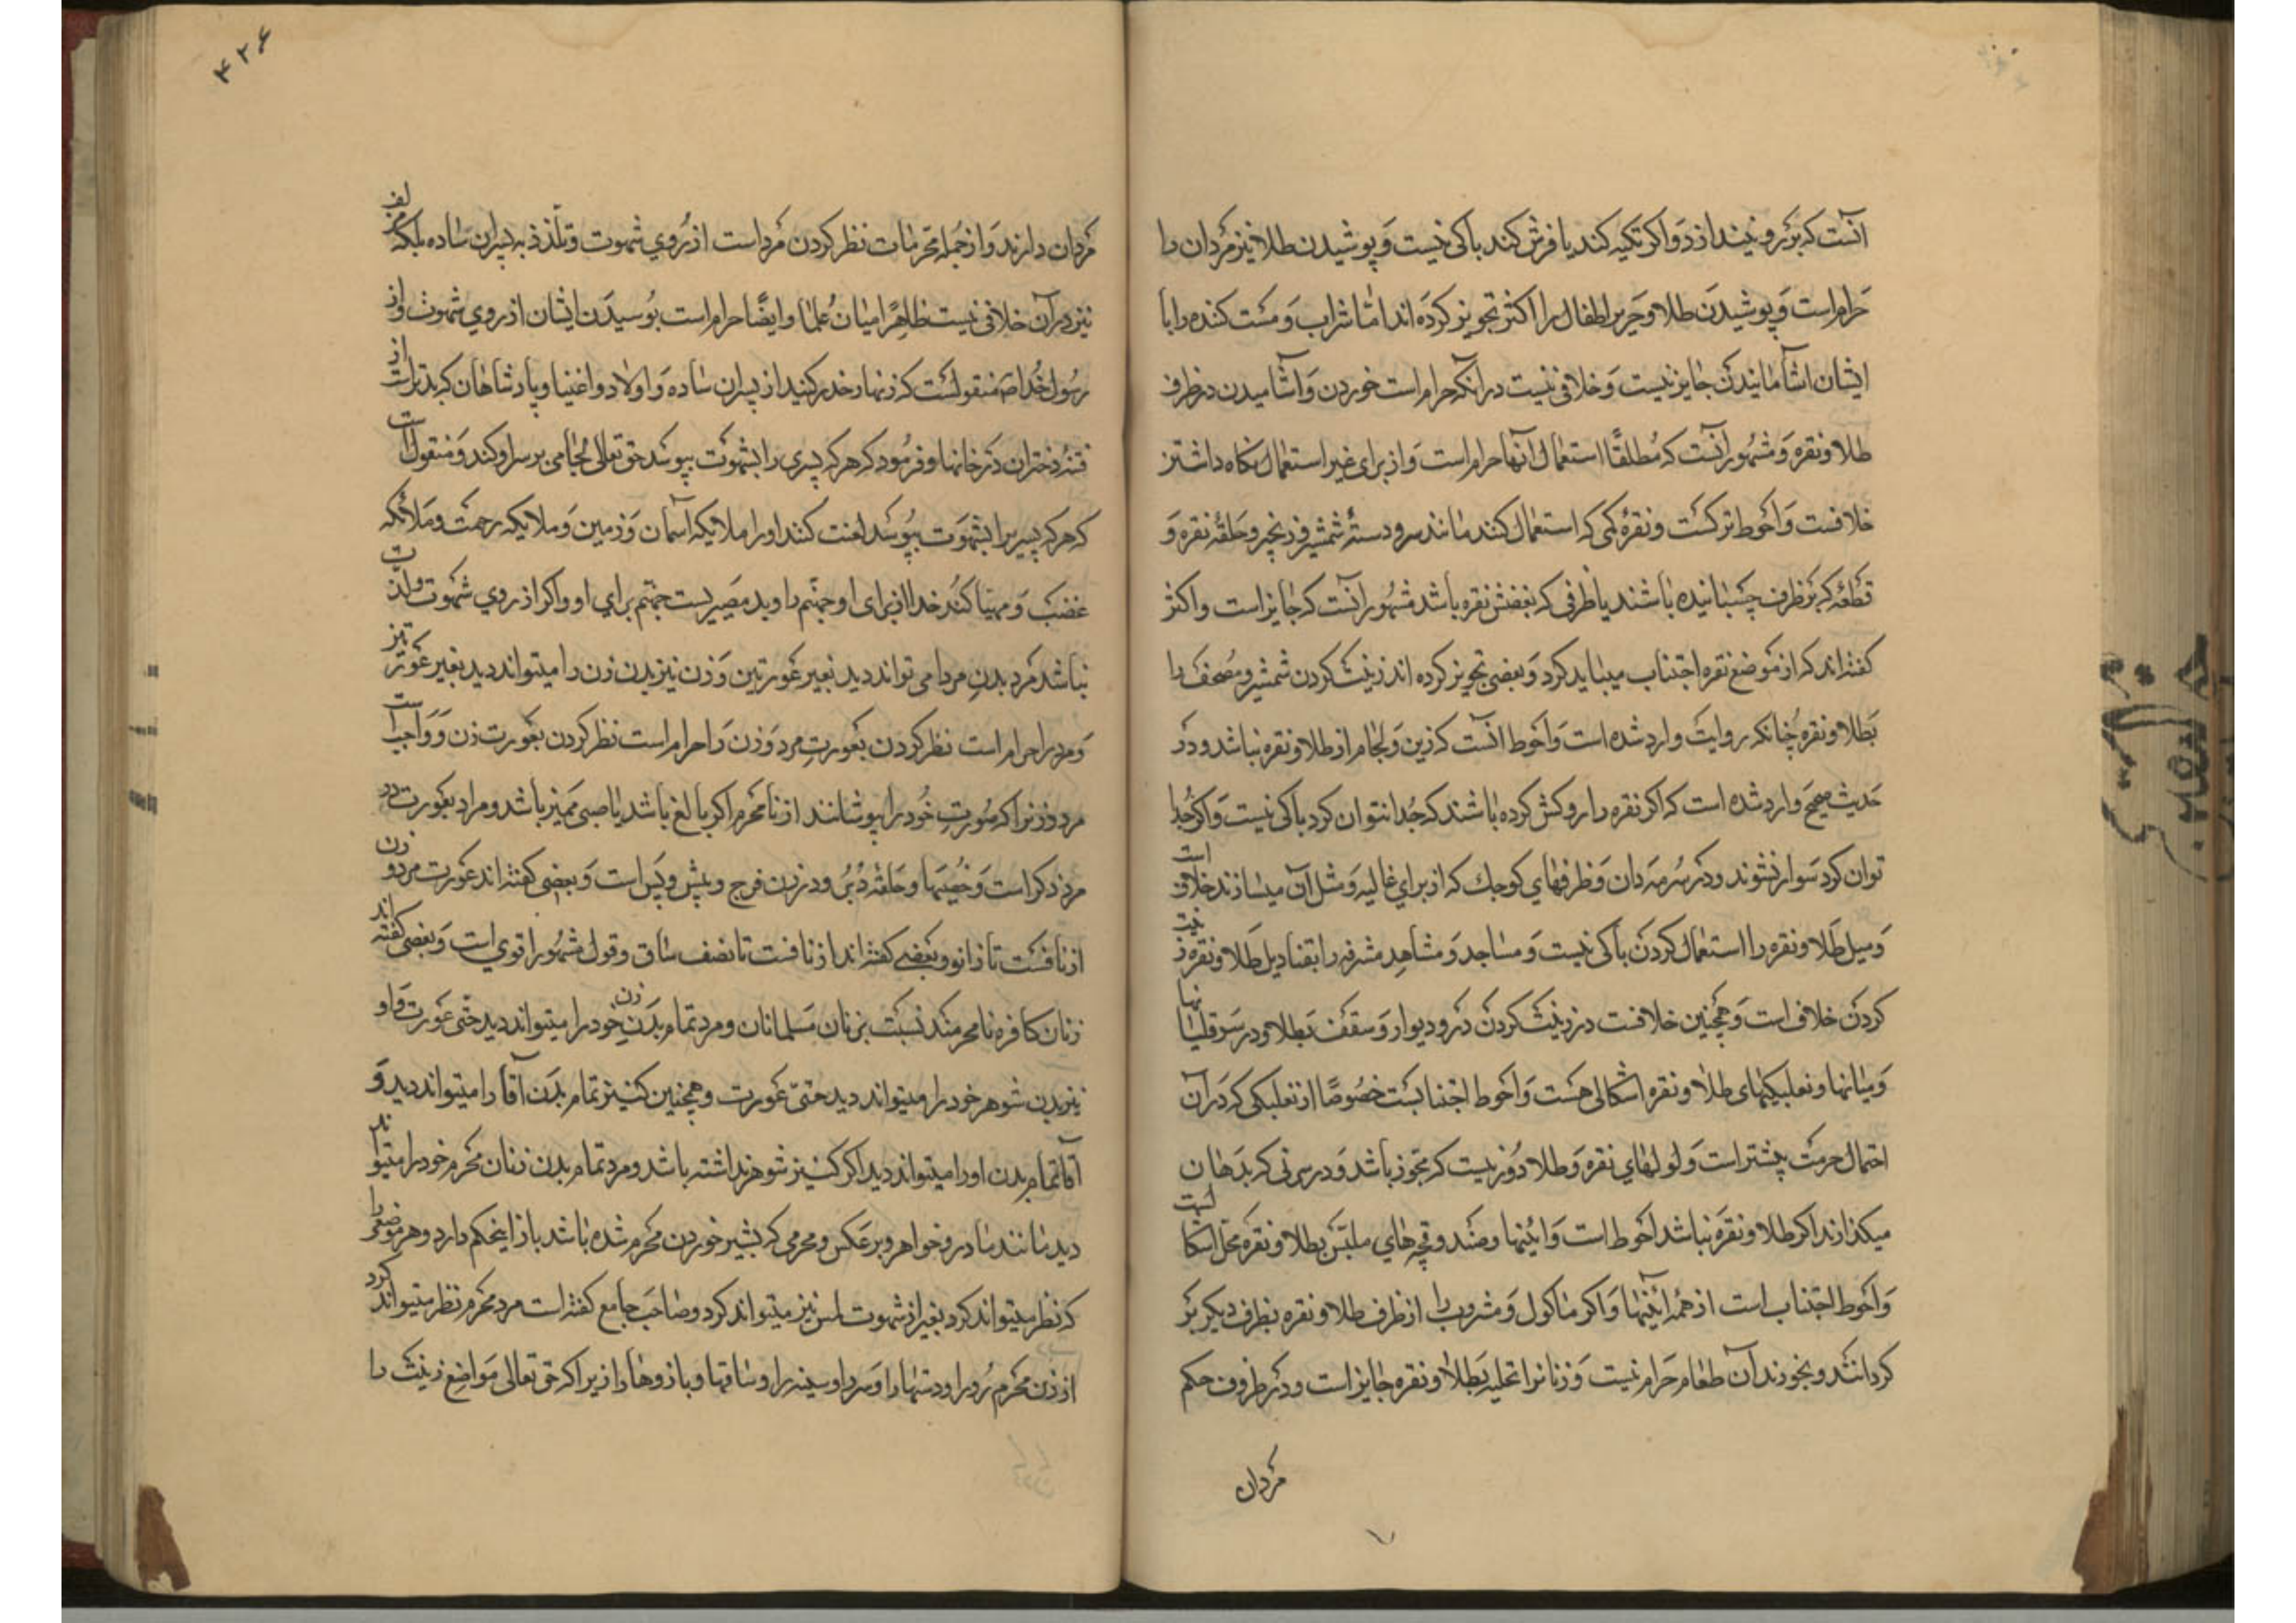 آنست که بر رو نیندازد و اکر تکیه کند یا فرش کند باکی نیست و پوشیدن طلا نیز مردان را
حرام است و پوشیدن طلا و حریر اطفال را اکثر تجویز کرده اند اما شراب و مست کننده را با
ایشان آشامانیدن جایز نیست و خلافی نیست در آنکه حرام است خوردن و آشامیدن در ظرف
طلا و نقره و مشهور آنست که مطلقا استعمال آنها حرام است و از برای غیر استعمال نکاه داشتن
خلافست و احوط ترکست و نقره کمی که استعمال کنند مانند سر و دستهٔ شمشیر و زنجیر و حلقهٔ نقره و
قطعهٔ که بر ظرف چسبانیده باشند یا ظرفی که بعضش نقره باشد مشهور آنست که جایز است و اکثر
کفته اند که از موضع نقره اجتناب میباید کرد و بعضی تجویز کرده اند زینت کردن شمشیر و مصحف را
بطلا و نقره چنانکه روایت وارد شده است و احوط آنست که زین و لجام از طلا و نقره نباشد و در
حدیث صحیح وارد شده است که اکر نقره را روکش کرده باشند که جدا نتوان کرد باکی نیست و اکر جدا
توان کرد سوار نشوند و در سرمه دان و ظرفهای کوچک که از برای غالیه و مثل آن میسازند خلاف است
و میل طلا و نقره را استعمال کردن باکی نیست و مساجد و مشاهد مشرفه را بقنادیل طلا و نقره زینت
کردن خلاف است و همچنین خلافست در زینت کردن در و دیوار و سقف بطلا و در سر قلیانها
و میانها و نعلبکیهای طلا و نقره اشکالی هست و احوط اجتنابست خصوصا از نعلبکی که در آن
احتمال حرمت بیشتر است و لولهای نقره و طلا دور نیست که مجوز باشد و در سر نی که بدهان
میکذارند اکر طلا و نقره نباشد احوط است و آئینها و صندوقچه های ملبس بطلا و نقره محل اشکالست
و احوط اجتناب است از همه اینها و اکر ماکول و مشروب را از ظرف طلا و نقره بظرف دیکر بر
کردانند و بخورند آن طعام حرام نیست و زنانرا تحلیه بطلا و نقره جایز است و در ظروف حکم
مردان
۴۲۶
مردان دارند و از جمله محرمات نظر کردن مرد است از روی شهوت و تلذذ به پسران ساده بلکه
نیز در آن خلافی نیست ظاهرا میان علما و ایضا حرام است بوسیدن ایشان از روی شهوت و از
رسول خدا ص منقولست که زنهار حذر کنید از پسران ساده و اولاد و اغنیا و پادشاهان که بدتر است از
فتنهٔ دختران در خانها و فرمود که هر که پسری را بشهوت ببوسد حق تعالی لجامی بر سر او کند و منقول است
که هر که پسر را بشهوت ببوسد لعنت کنند او را ملایکه آسمان و زمین و ملایکه رحمت و ملائکه
غضب و مهیا کند خدا از برای او جهنم را و بد مصیریست جهنم برای او و اکر از روی شهوت و لذت
نباشد مرد بدن مرد را می تواند دید بغیر عورتین و زن نیز بدن زن را میتواند دید بغیر عورتین
و مرد را حرام است نظر کردن بعورت مرد و زن را حرام است نظر کردن بعورت زن و واجب است
مرد و زنرا که عورت خود را بپوشانند از نامحرم اکر بالغ باشد یا صبی ممیز باشد و مراد بعورت در
مرد ذکر است و خصیها و حلقهٔ دبر و در زن فرج و پیش و پس است و بعضی کفته اند عورت مرد و زن
از نافست تا زانو و بعضی کفته اند از نافست تا نصف ساق و قول مشهور اقوی است و بعضی کفته اند
زنان کافره نامحرمند نسبت بزنان مسلمانان و مرد تمام بدن زن خود را میتواند دید حتی عورت او و
نیز بدن شوهر خود را میتواند دید حتی عورت و همچنین کنیز تمام بدن آقا را میتواند دید و
آقا تمام بدن او را میتواند دید اکر کنیز شوهر نداشته باشد و مرد تمام بدن زنان محرم خود را میتواند
دید مانند مادر و خواهر و برعکس و محرمی که بشیر خوردن محرم شده باشد باز اینحکم دارد و هر موضعی را
که نظر میتواند کرد بغیر از شهوت لمس نیز میتواند کرد و صاحب جامع کفته است مرد محرم نظر میتواند کرد
از زن محرم رو را و دستها را و سر را و سینه را و ساقها و بازوها را زیرا که حق تعالی مواضع زینت را